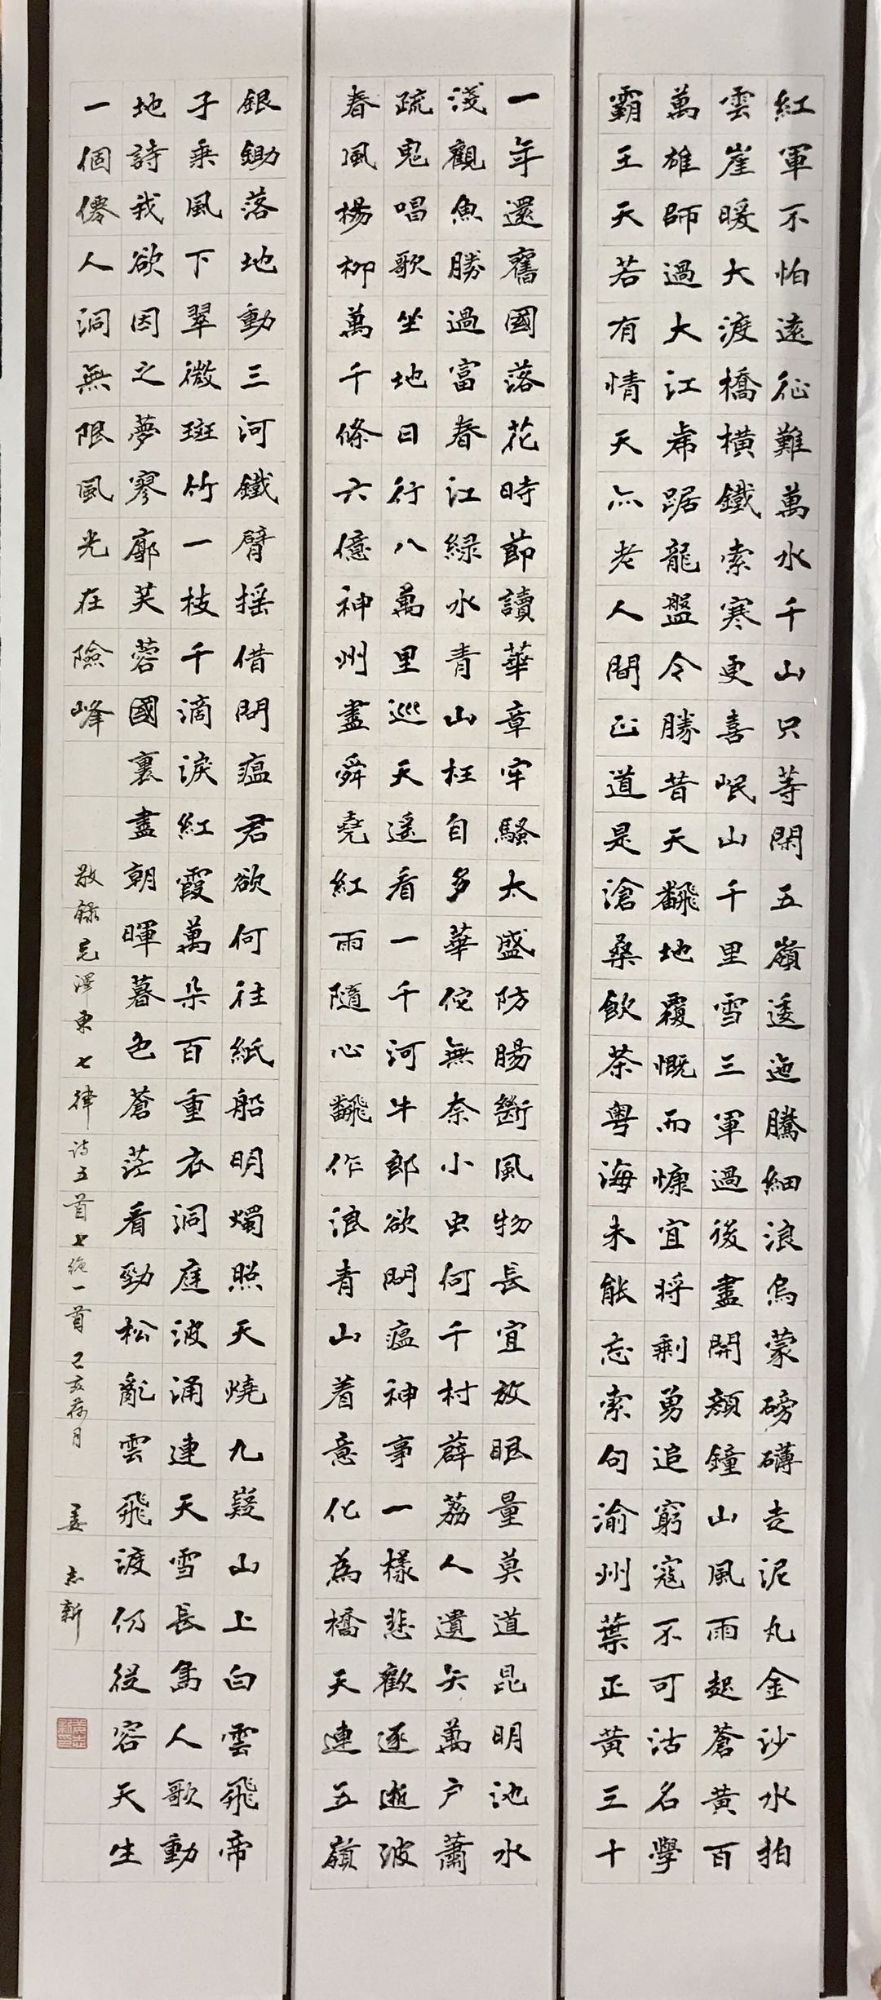 紅軍不怕遠征難萬水千山只等閑五嶺逶迤騰細浪烏蒙磅礴走泥丸金沙水拍
雲崖暖大渡橋橫鐵索寒更喜岷山千里雪三軍過後盡開顏鐘山風雨起蒼黃百
萬雄師過大江虎踞龍盤今勝昔天飜地覆慨而慷宜將剩勇追窮寇不可沽名學
霸王天若有情天亦老人間正道是滄桑飲茶粵海未能忘索句渝州葉正黃三十
一年還舊國落花時節讀華章牢騷太盛防腸斷風物長宜放眼量莫道昆明池水
淺觀魚勝過富春江綠水青山枉自多華佗無奈小虫何千村薜荔人遺矢萬戶蕭
疏鬼唱歌坐地日行八萬里巡天遙看一千河牛郎欲問瘟神事一樣悲歡逐逝波
春風楊柳萬千條六億神州盡舜堯紅雨隨心飜作浪青山着意化為橋天連五嶺
銀鋤落地動三河鐵臂搖借問瘟君欲何往紙船明燭照天燒九嶷山上白雲飛帝
子乘風下翠微斑竹一枝千滴淚紅霞萬朵百重衣洞庭波涌連天雪長島人歌動
地詩我欲因之夢寥廓芙蓉國裏盡朝暉暮色蒼茫看勁松亂雲飛渡仍從容天生
一個僊人洞無限風光在險峰
敬錄毛澤東七律詩五首七絕一首己亥荷月 姜志新
姜志新印